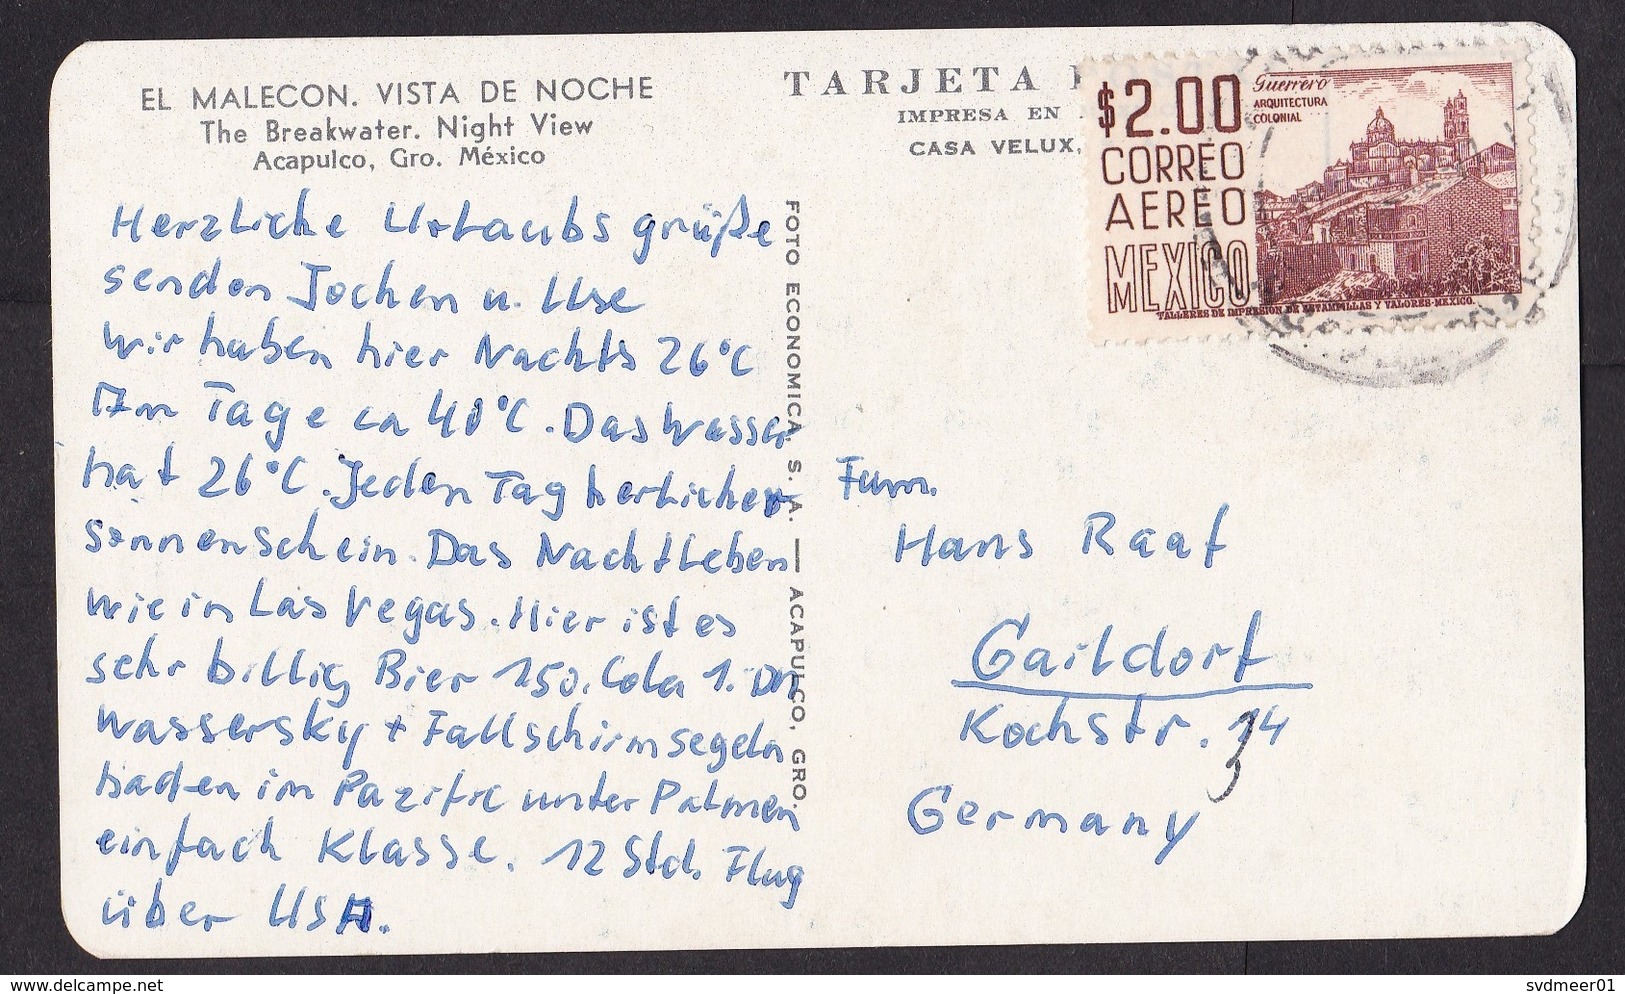 EL MALECON. VISTA DE NOCHE
The Breakwater. Night View
Acapulco, Gro. México
Herzliche Urlaubsgrüße
senden Jochen u. Ilse
Wir haben hier Nachts 26°C
Am Tage ca 40°C. Das Wasser
hat 26°C. Jeden Tag herrlicher
Sonnenschein. Das Nachtleben
wie in Las Vegas. Hier ist es
sehr billig Bier 150, Cola 1. DM
Wassersky + Fallschirmsegeln
baden im Pazific unter Palmen
einfach Klasse. 12 Std. Flug
über USA.
FOTO ECONOMICA, S. A. — ACAPULCO, GRO.
TARJETA
IMPRESA EN
CASA VELUX,
$2.00
CORREO
AEREO
MEXICO
Guerrero
ARQUITECTURA
COLONIAL
TALLERES DE IMPRESION DE ESTAMPILLAS Y VALORES-MEXICO.
Fam.
Hans Raaf
Gaildorf
Kochstr. 14
3
Germany
svdmeer01